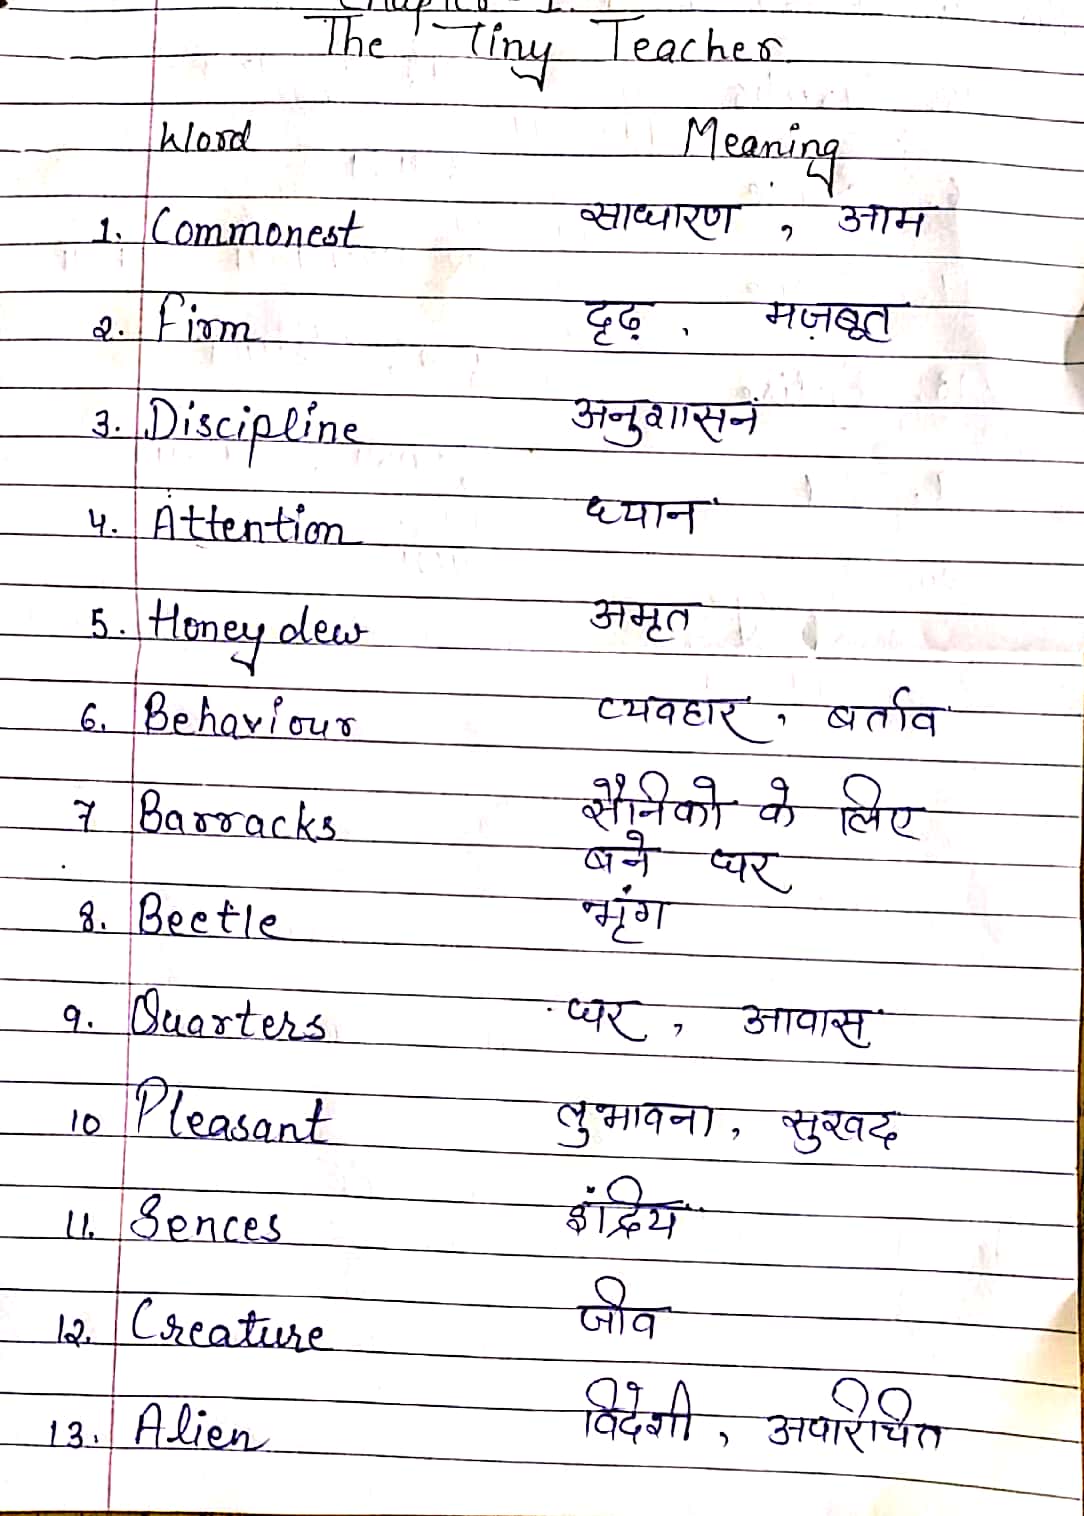 Chapter - 1.
The Tiny Teacher
Word Meaning
1. Commonest साधारण , आम
2. Firm दृढ़ , मज़बूत
3. Discipline अनुशासन
4. Attention ध्यान
5. Honey dew अमृत
6. Behaviour व्यवहार , बर्ताव
7 Barracks सैनिको के लिए
बने घर
8. Beetle भृंग
9. Quarters घर , आवास
10 Pleasant लुभावना , सुखद
11. Sences इंद्रिय
12. Creature जीव
13. Alien विदेशी , अपरिचित